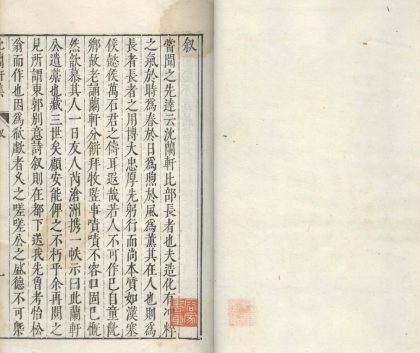 叙
嘗聞之先達云沈蘭軒比部長者也夫造化有冲粹
之氣於時為春於日為煦於風為薰其在人也則為
長者長者之用博大忠厚先躬行而尚本質如漢塞
侯懿侯萬石君之儔耳遐哉若人不可作已自童齔
鄉故老誦蘭軒分餅拜牧監事嘖嘖不容口固已慨
然歆慕其人一日友人芮滄洲携一帙示曰此蘭軒
公遺藁也藏三世矣顧安能俾之不朽乎余再閱之
見所謂東郭別意詩叙則在都下送我先曾考怡松
翁而作也因為欷歔者久之嗟嗟公之盛德不可槩
蘭軒集　叙　一